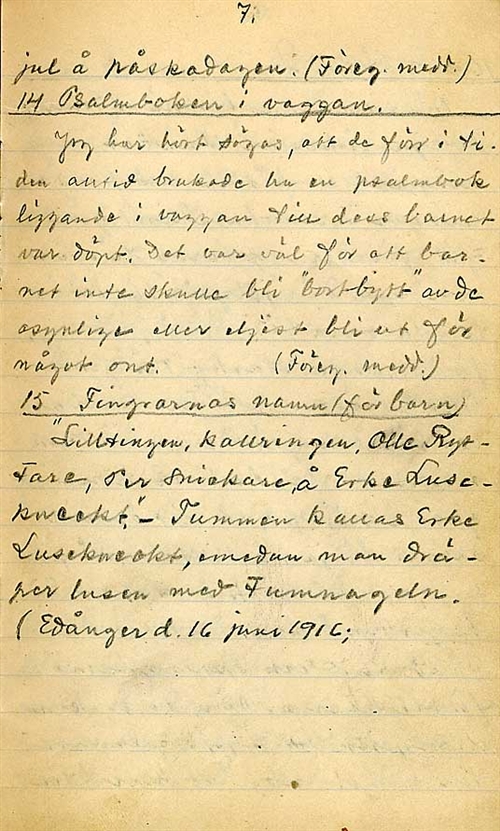 7.
jul å påskadagen. (Föreg. medd.)
14 Psalmboken i vaggan.
Jag har hört sägas, att de förr i ti-
den alltid brukade ha en psalmbok
liggande i vaggan till dess barnet
var döpt. Det var väl för att bar-
net inte skulle bli "bortbytt" av de
osynliga eller eljest bli ut för
något ont. (Föreg. medd.)
15 Fingrarnas namn (för barn)
"Lilltingen, kallringen, Olle Ryt-
tare, Per Snickare, å Erke Luse-
kneckt," – Tummen kallas Erke
Lusekneckt, emedan man drä-
per lusen med tumnageln.
(Edånger d. 16 juni 1916;